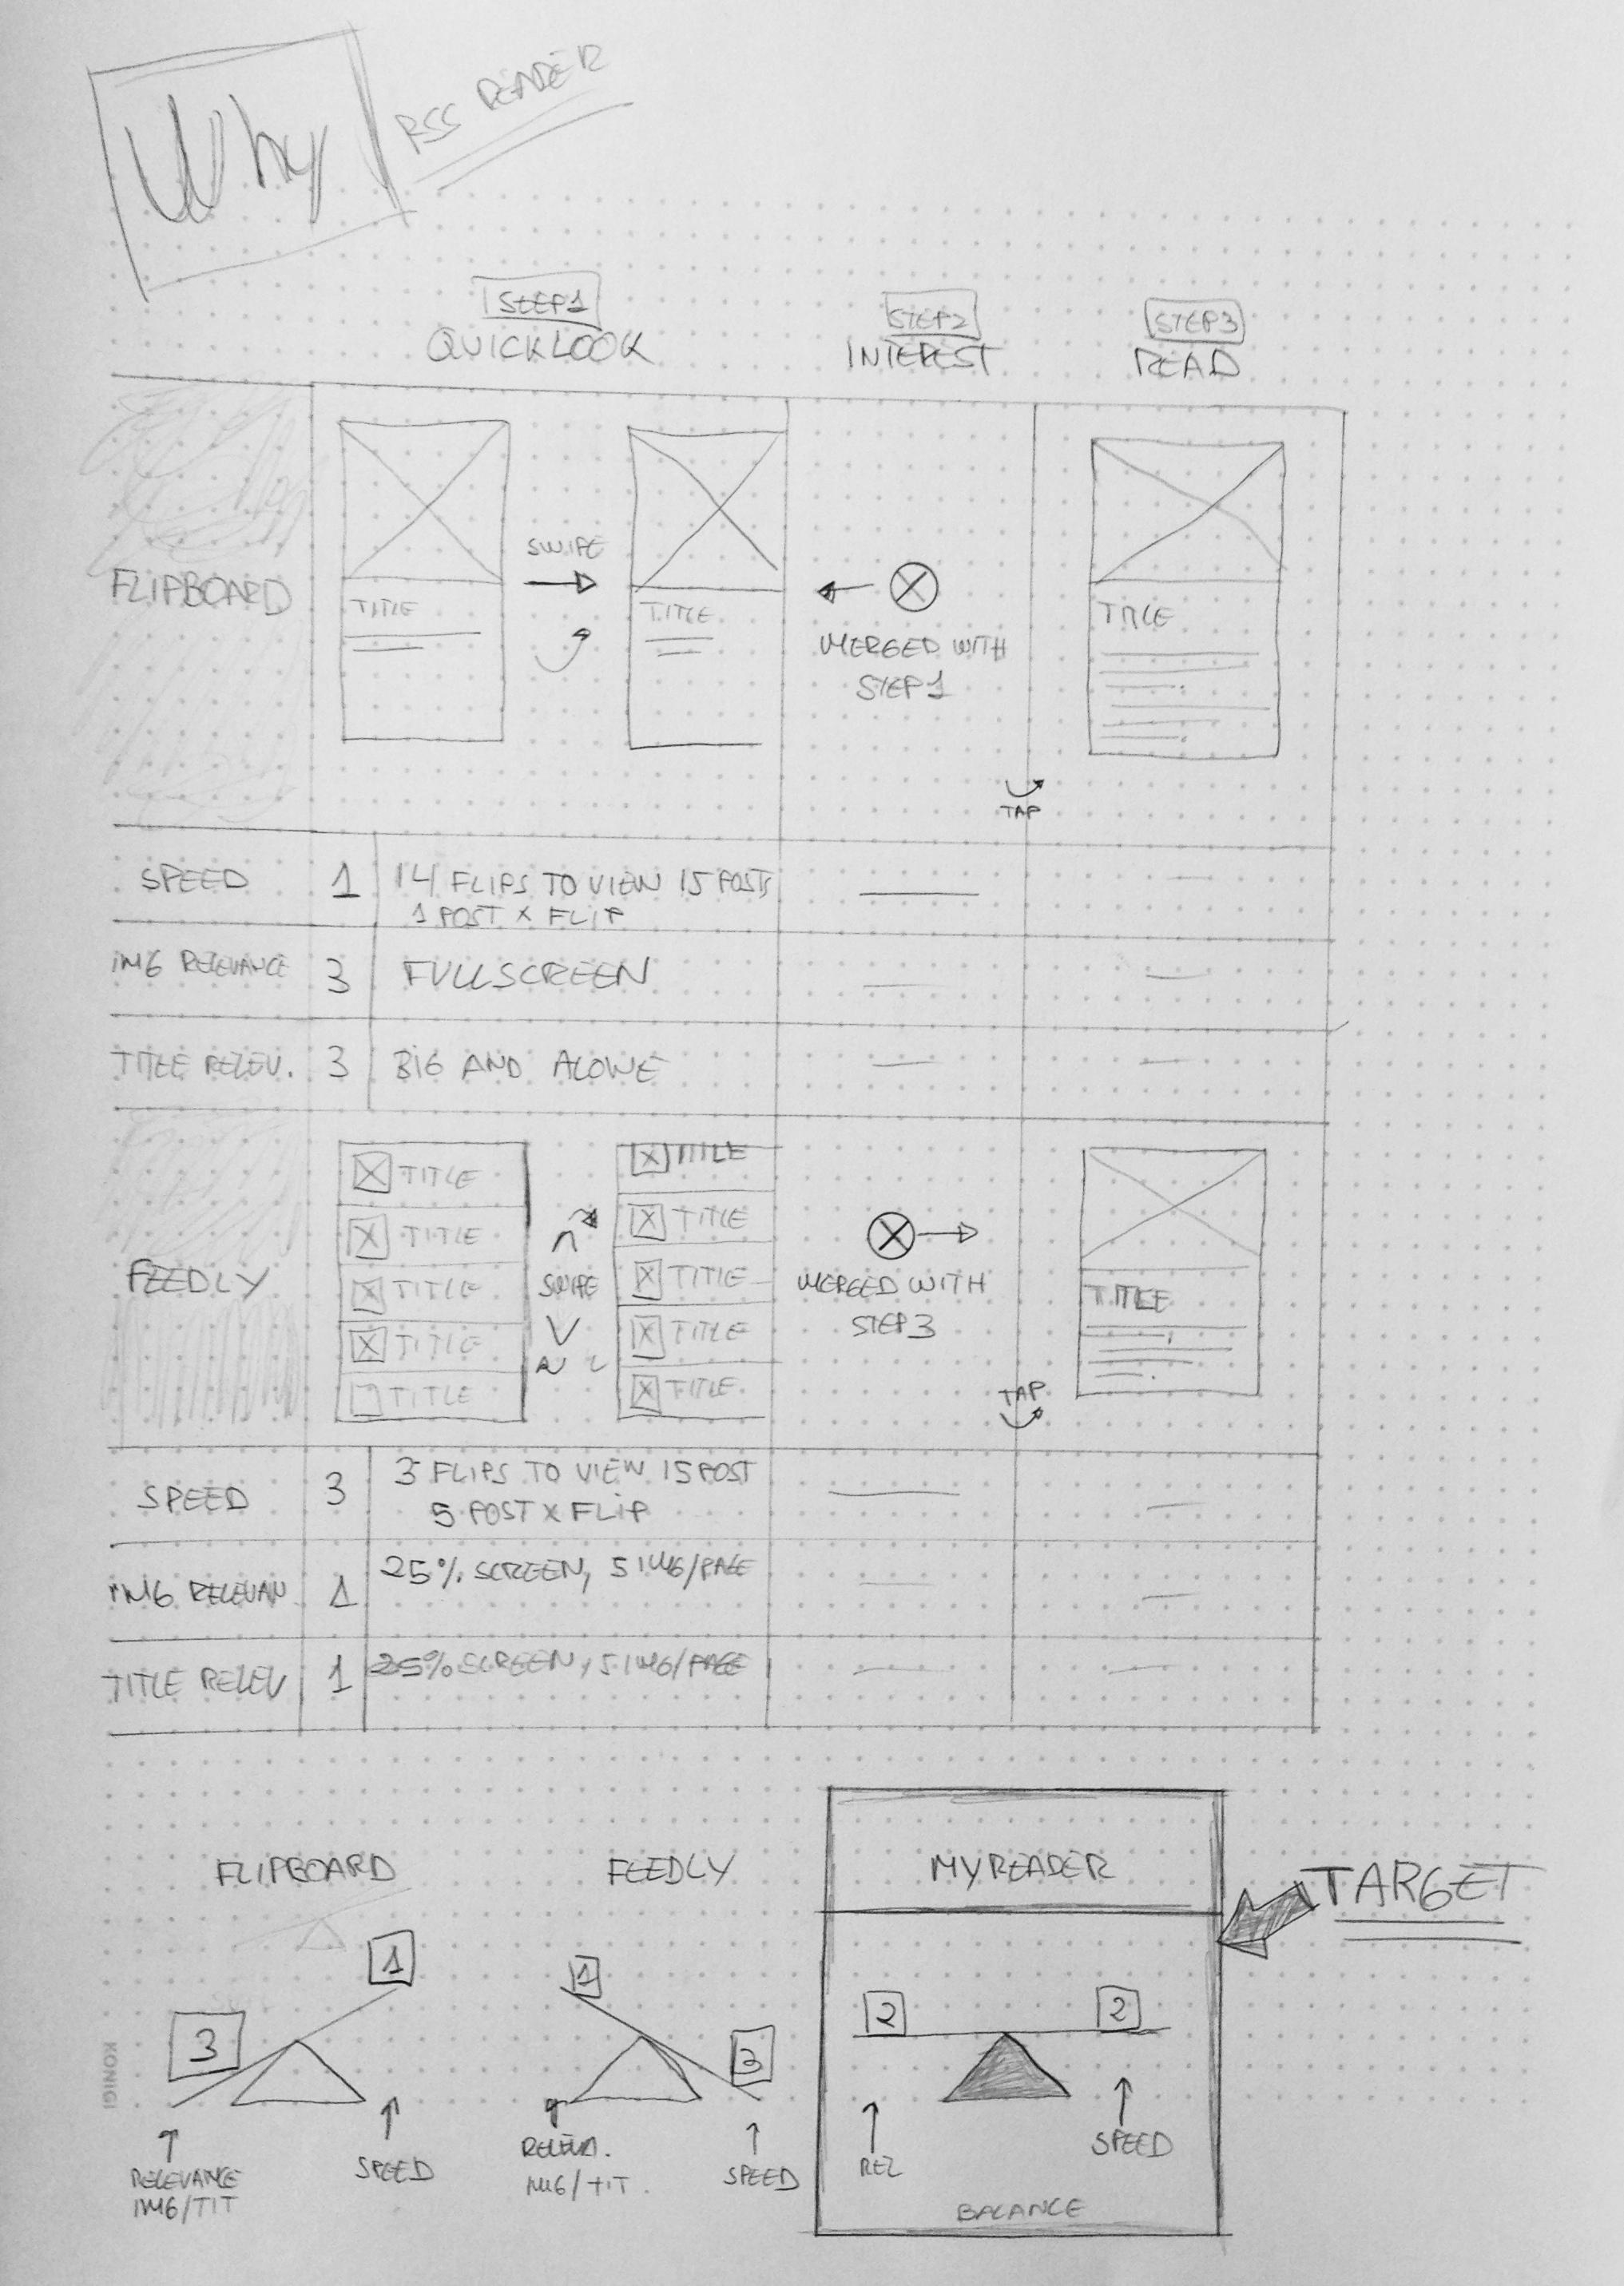 Why
RSS READER
STEP1
QUICKLOOK
STEP2
INTEREST
STEP3
READ
FLIPBOARD
TITLE
SWIPE
TITLE
MERGED WITH
STEP1
TITLE
TAP
SPEED
1
14 FLIPS TO VIEW 15 POSTS
1 POST X FLIP
IMG RELEVANCE
3
FULLSCREEN
TITLE RELEV.
3
BIG AND ALONE
FEEDLY
TITLE
TITLE
TITLE
TITLE
TITLE
SWIPE
TITLE
TITLE
TITLE
TITLE
TITLE
MERGED WITH
STEP3
TITLE
TAP
SPEED
3
3 FLIPS TO VIEW 15 POST
5 POST X FLIP
IMG RELEVAN
1
25% SCREEN, 5 IMG/PAGE
TITLE RELEV
1
25% SCREEN, 5 IMG/PAGE
FLIPBOARD
3
1
RELEVANCE
IMG/TIT
SPEED
FEEDLY
1
3
RELEV.
IMG/TIT.
SPEED
MYREADER
2
2
REL
SPEED
BALANCE
TARGET
KONIGI